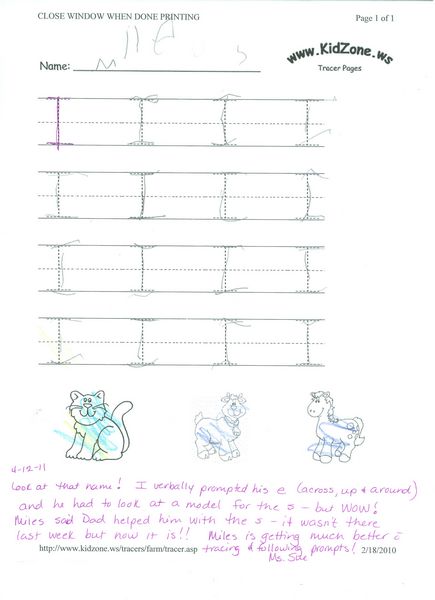 CLOSE WINDOW WHEN DONE PRINTING Page 1 of 1
Name: Miles
www.KidZone.ws
Tracer Pages
I I I I
I I I I
I I I I
I I I I
4-12-11
Look at that name! I verbally prompted his e (across, up & around)
and he had to look at a model for the s - but WOW!
Miles said Dad helped him with the s - it wasn't there
last week but now it is!! Miles is getting much better c̄
http://www.kidzone.ws/tracers/farm/tracer.asp tracing & following prompts! 2/18/2010
Ms. Sue